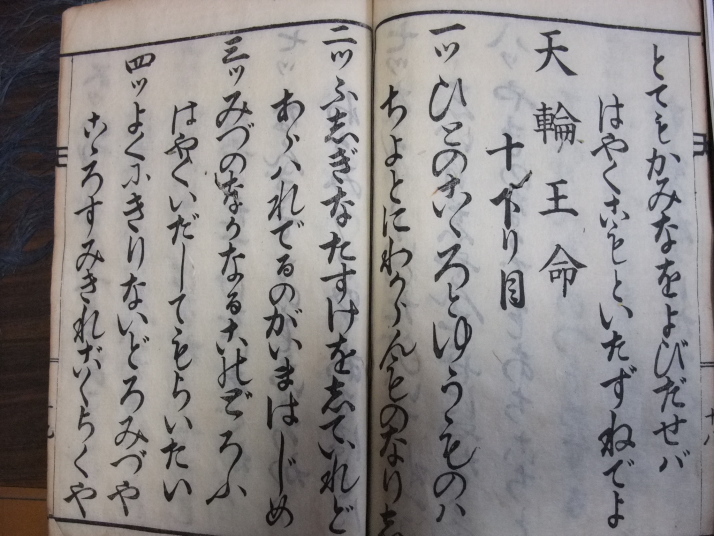 とてもかみなをよびだせバ
はやくこもといたずねでよ
天輪王命
十下り目
一ツひとのこゝろとゆうものハ
ちよとにわからんものなり
二ツふしぎなたすけをしていれど
あらハれでるのがいまはじめ
三ツみづのなかなるこのどろふ
はやくいだしてもらいたい
四ツよくにきりないどろみづや
こゝろすみきれごくらくや